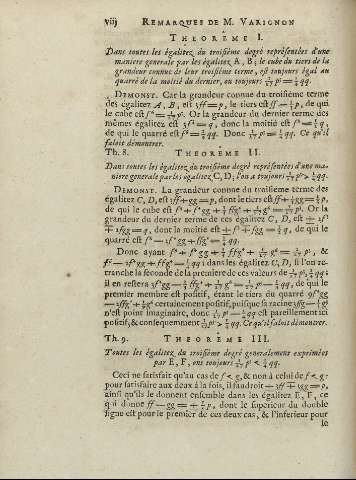 viij REMARQUES DE M. VARIGNON
THEOREME I.
Dans toutes les égalitez du troisiéme degré représentées d'une
maniere generale par les égalitez A, B; le cube du tiers de la
grandeur connuë de leur troisiéme terme, est toujours égal au
quarré de la moitié du dernier, ou toujours 1/27 p³ = 1/4 qq.
DEMONST. Car la grandeur connuë du troisiéme terme
des égalitez A, B, est 3ff = p, le tiers est ff = 1/3 p, de qui
le cube est f⁶ = 1/27 p³. Or la grandeur du dernier terme des
mêmes égalitez est 2f³ = q, donc la moitié est f³ = 1/2 q,
de qui le quarré est f⁶ = 1/4 qq. Donc 1/27 p³ = 1/4 qq. Ce qu'il
falloit démontrer.
Th. 8. THEOREME II.
Dans toutes les égalitez du troisiéme degré représentées d'une ma-
niere generale par les égalitez C, D; l'on a toujours 1/27 p³ > 1/4 qq.
DEMONST. La grandeur connuë du troisiéme terme des
égalitez C, D, est
de qui le cube est
grandeur du dernier terme de ces égalitez C, D, est
donc la moitié est
quarré est
Donc ayant
dans les égalitez C, D, si l'on re-
tranche la seconde de la premiere de ces valeurs de
il en restera de qui le
premier membre est positif, étant le tiers du quarré
certainement positif, puisque sa racine
n'est point imaginaire, donc est pareillement ici
positif, & consequemment 1/27 p³ > 1/4 qq. Ce qu'il falloit démontrer.
Th. 9. THEOREME III.
Toutes les égalitez du troisiéme degré generalement exprimées
par E, F, ont toujours 1/27 p³ < 1/4 qq.
Ceci ne satisfait qu'au cas de f < g, & non à celui de f < g:
pour satisfaire aux deux à la fois, il faudroit
ainsi qu'ils se donnent ensemble dans les égalitez E, F, ce
qui donne dont le superieur du double
signe est pour le premier de ces deux cas, & l'inferieur pour
le